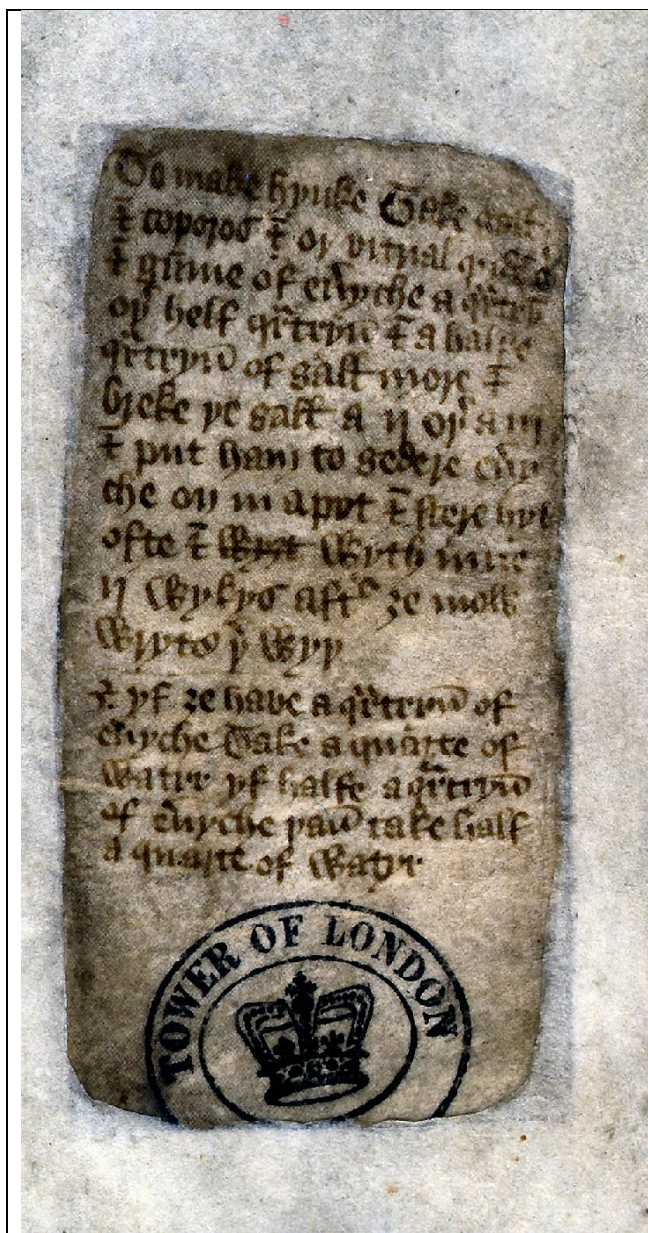 To make hynke Take galt
⁊ coporos ⁊ or vitrial
⁊ gūme of eũyche a qᵃrtryn
oþʳ helf qᵃrtryn ⁊ a halfe
qᵃrtryn of galt more ⁊
breke ye galt a ij oþʳ a iij
⁊ put ham to gedere eũy
che on in a pot ⁊ stere hyt
ofte ⁊ wyth inne
ij wykys aftʳ ȝe mow
wryte
⁊ yf ȝe have a qᵃrtryn of
eũyche Take a quarte of
water yf halfe a qᵃrtryn
of eũyche þan take half
a quarte of water
TOWER OF LONDON